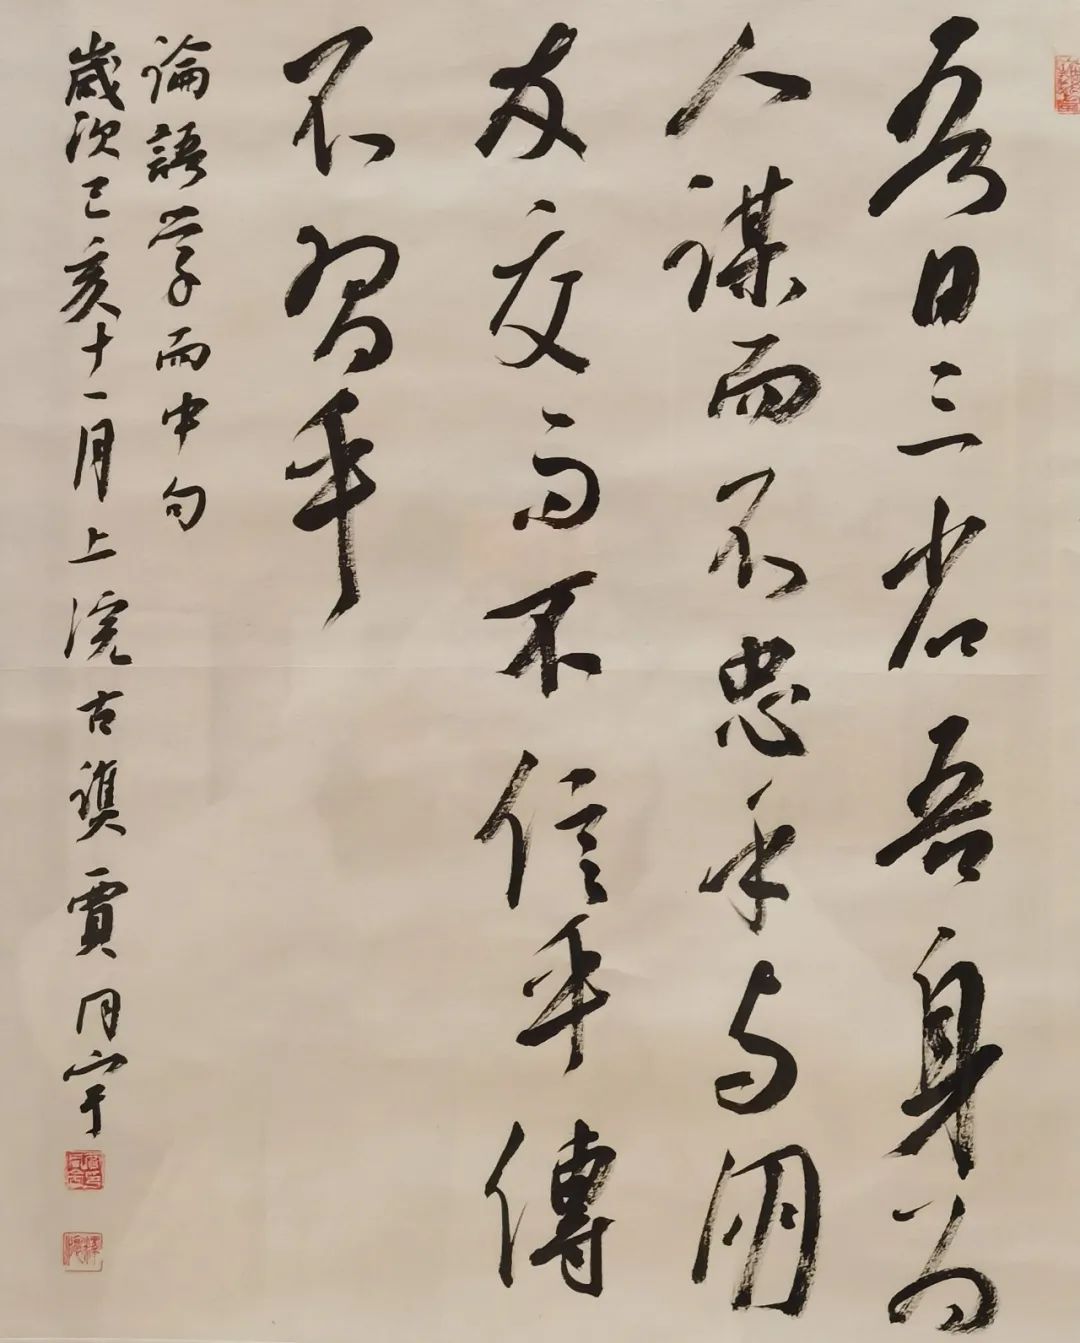 吾日三省吾身为
人謀而不忠乎与朋
友交而不信乎傳
不習乎
論語学而中句
歲次己亥十一月上浣古賈同宇